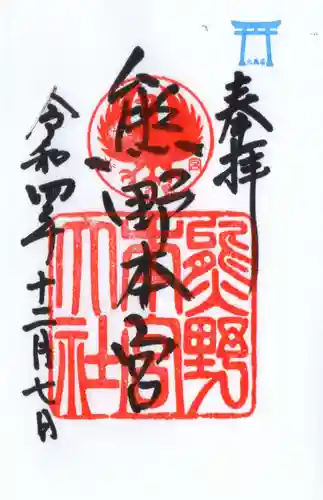 奉拝
熊野本宮
令和四年
十二月七日
熊野
本宮
大社